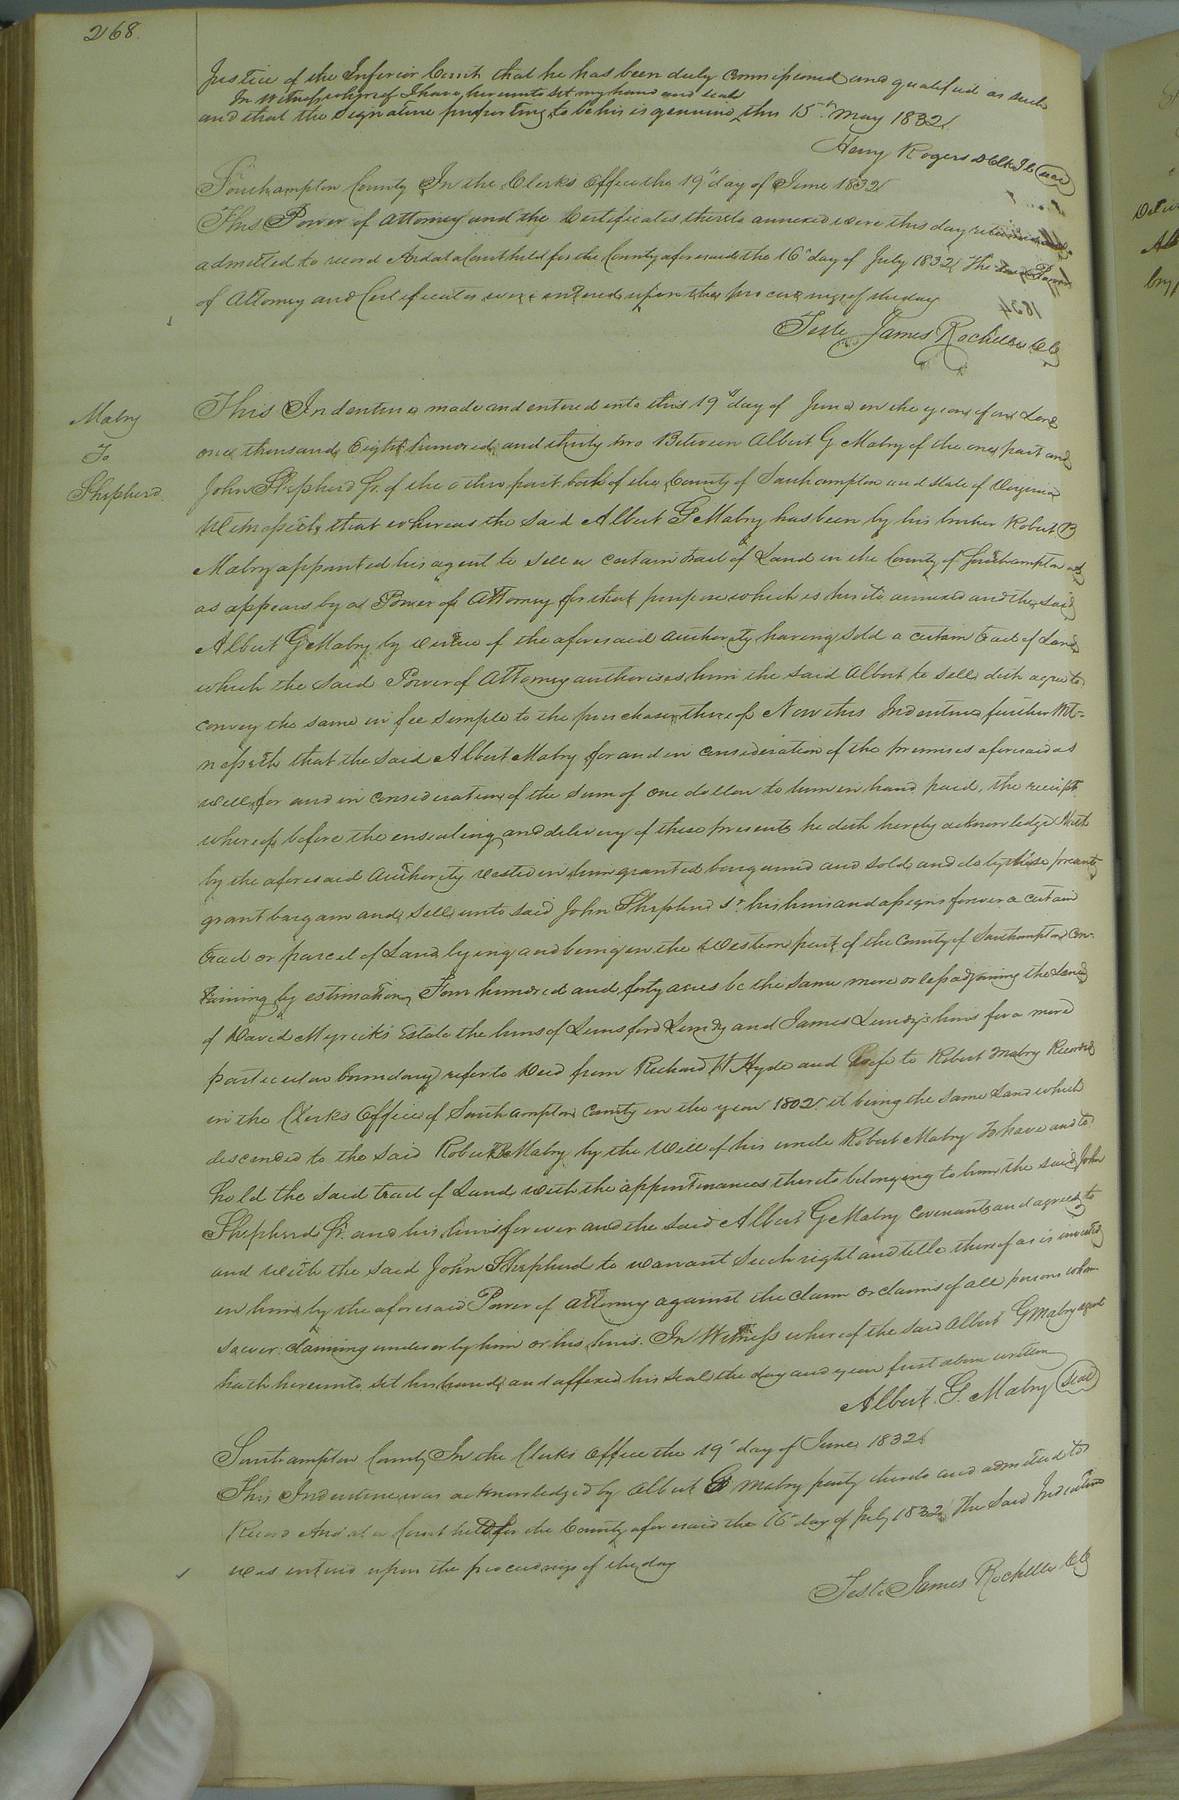 268.
Justice of the Inferior Court that he has been duly commissioned and qualified as such
In Witness whereof I have hereunto set my hand and seal
and that the signature purporting to be his is genuine this 15th May 1832.
Henry Rogers D Clk I C (seal)
Southampton County In the Clerks Office the 19th day of June 1832
This Power of Attorney and the Certificates thereto annexed were this day returned and
admitted to record And at a Court held for the County aforesaid the 16th day of July 1832 The said Power
of Attorney and Certificates were entered upon the proceedings of the day
Teste James Rochelle C C
Mabry
To
Shepherd
This Indenture made and entered into this 19th day of June in the year of our Lord
one thousand Eight hundred and thirty two Between Albert G Mabry of the one part and
John Shepherd Sr. of the other part both of the County of Southampton and State of Virginia
Witnesseth, that whereas the said Albert G Mabry has been by his brother Robert B
Mabry appointed his agent to sell a certain tract of Land in the County of Southampton and
as appears by a Power of Attorney for that purpose which is hereto annexed and the said
Albert G Mabry by virtue of the aforesaid authority having sold a certain tract of Land
which the said Power of Attorney authorises him the said Albert to sell doth agree to
convey the same in fee simple to the purchaser thereof Now this Indenture further Wit-
nesseth that the said Albert Mabry for and in consideration of the premises aforesaid as
well for and in consideration of the sum of one dollar to him in hand paid, the receipt
whereof before the ensealing and delivery of these presents he doth hereby acknowledge Hath
by the aforesaid Authority vested in him granted bargained and sold and do by these presents
grant bargain and sell unto said John Shepherd Sr. his heirs and assigns forever a certain
tract or parcel of Land lying and being in the Western part of the County of Southampton Con-
taining by estimation Four hundred and forty acres be the same more or less adjoining the Lands
of David Myricks Estate the heirs of Lunsford Lundy and James Lundy's heirs for a more
particular boundary refer to Deed from Richard W Hyde and Wife to Robert Mabry Recorded
in the Clerks Office of Southampton County in the year 1802. it being the same Land which
descended to the said Robert B Mabry by the Will of his uncle Robert Mabry To have and to
hold the said tract of Land with the appurtenances thereto belonging to him the said John
Shepherd Sr. and his heirs forever and the said Albert G Mabry covenants and agrees to
and with the said John Shepherd to warrant such right and title thereof as is invested
in him by the aforesaid Power of Attorney against the claim or claims of all persons whom
soever claiming under or by him or his heirs. In Witness whereof the said Albert G Mabry agent
hath hereunto set his hand and affixed his seal the day and year first above written
Albert. G. Mabry (seal)
Southampton County In the Clerks Office the 19th day of June 1832
This Indenture was acknowledged by Albert G Mabry party thereto and admitted to
Record And at a Court held for the County aforesaid the 16th day of July 1832 The said Indenture
was entered upon the proceedings of the day
Teste James Rochelle C C